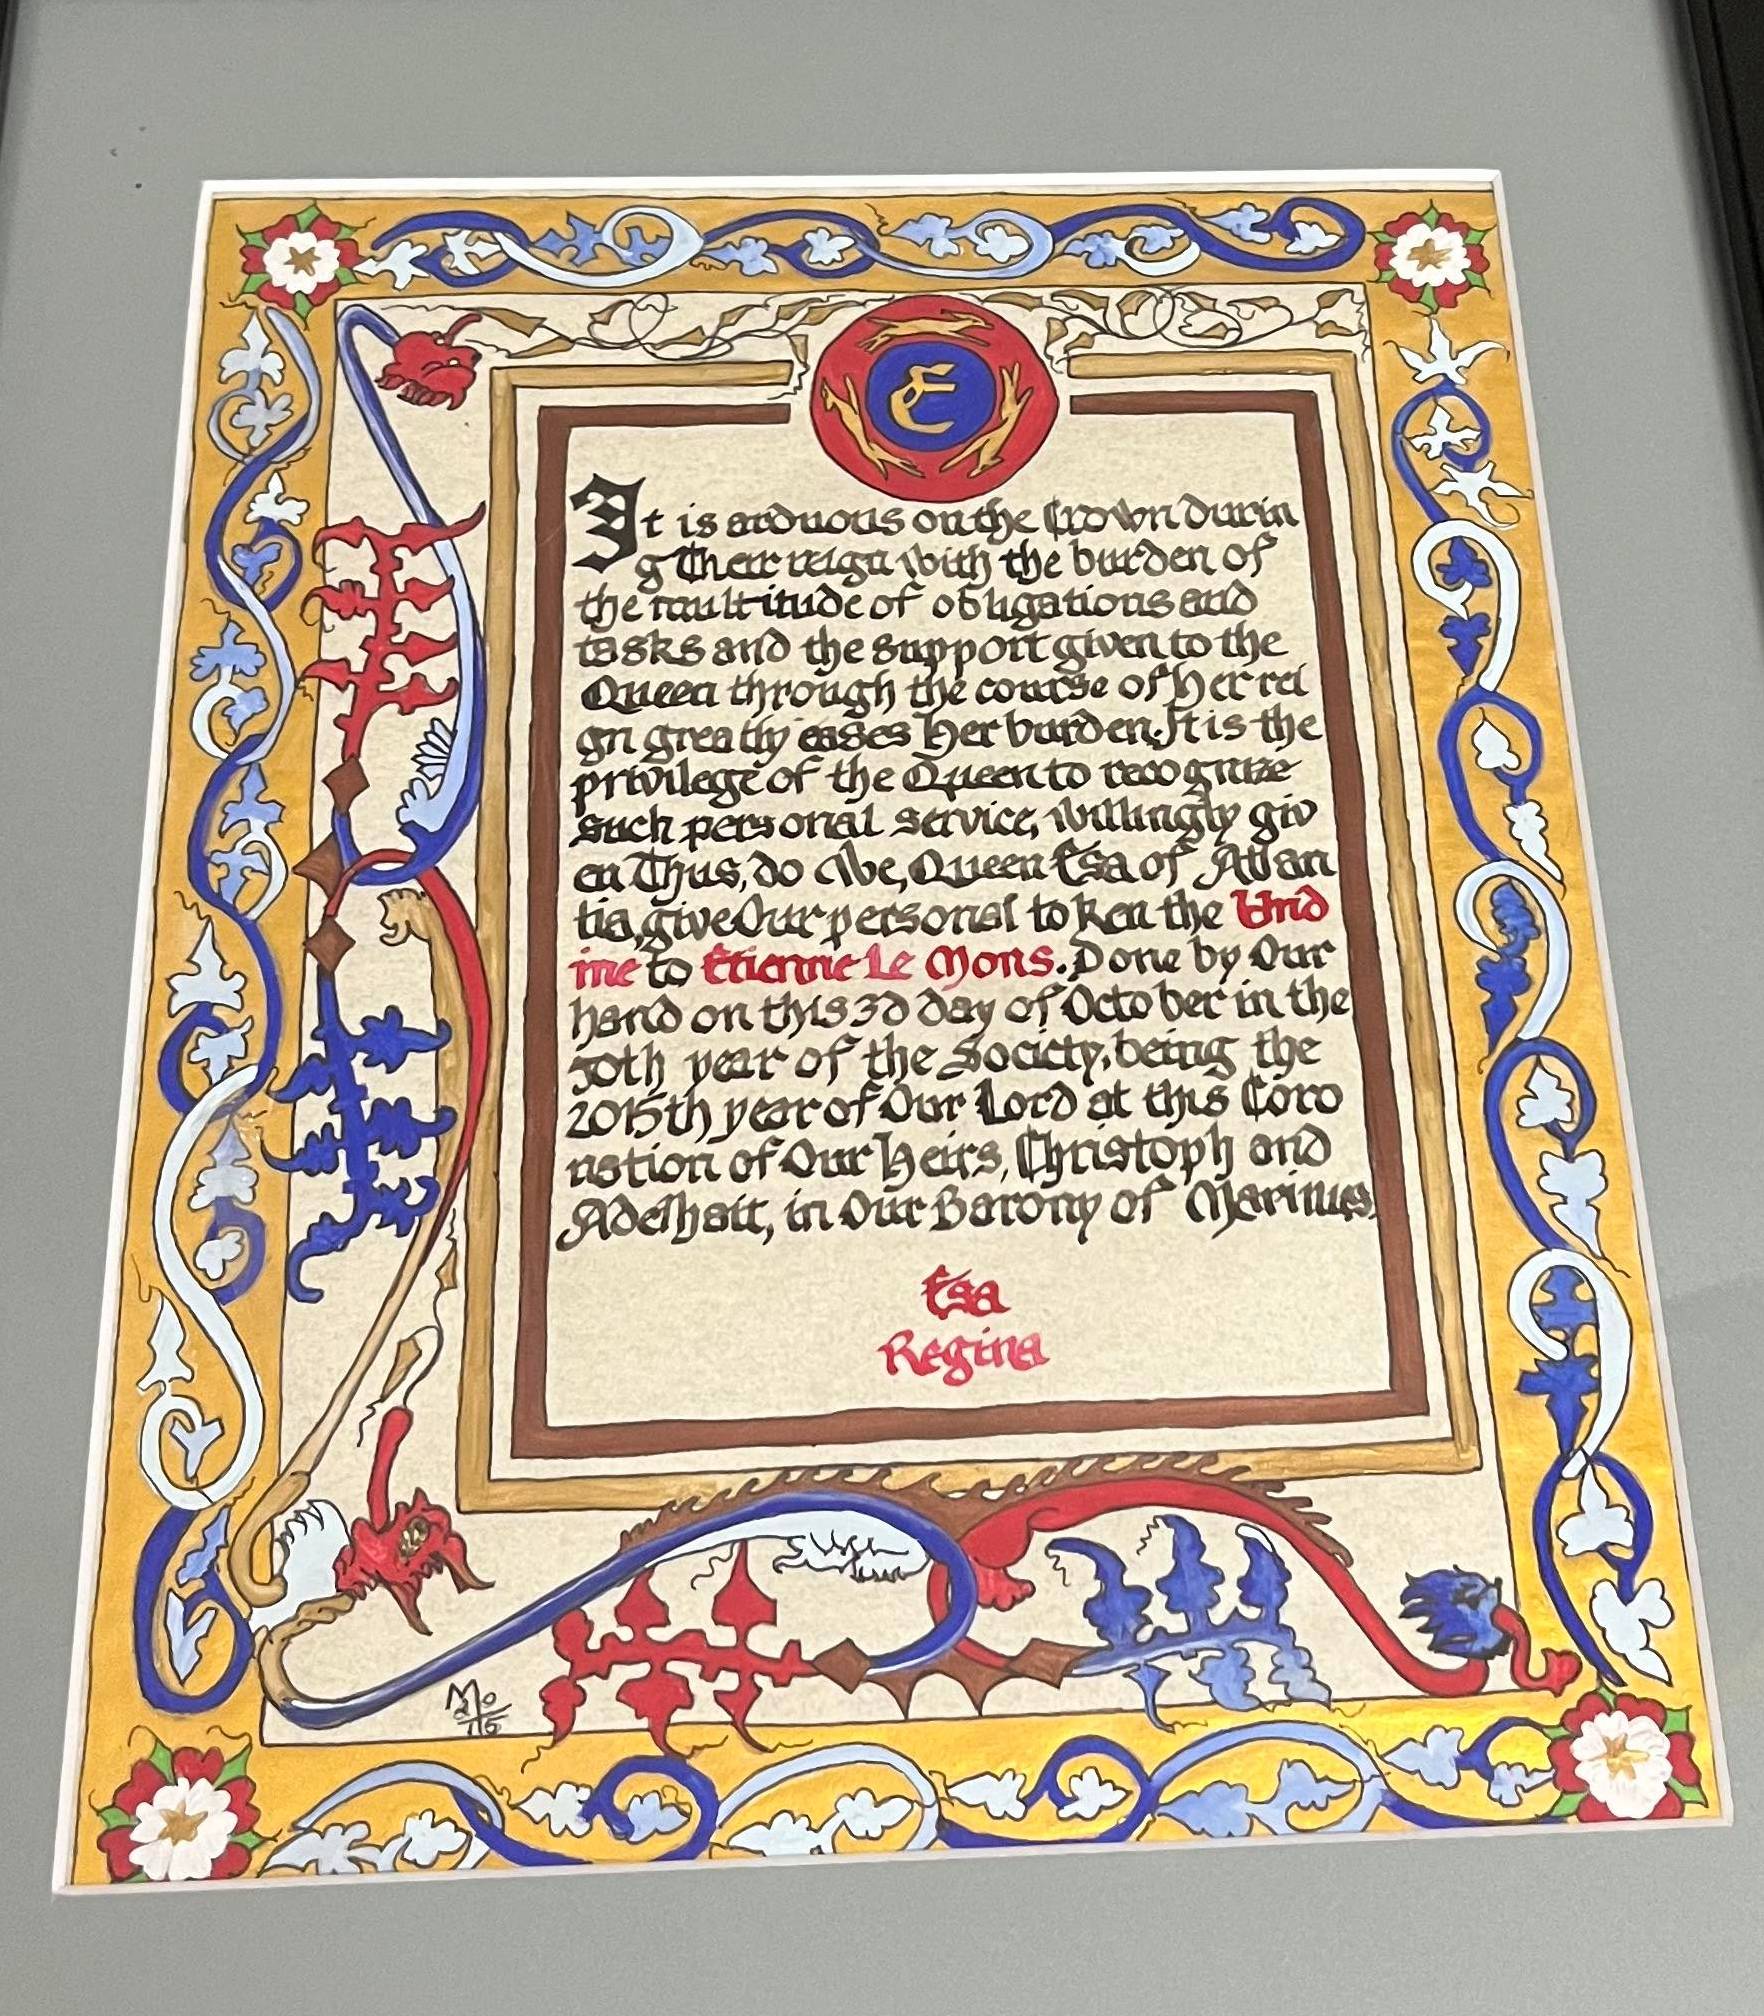 E
It is arduous on the Crown durin
g Their reign with the burden of
the multitude of obligations and
tasks and the support given to the
Queen through the course of Her rei
gn greatly eases Her burden. It is the
privilege of the Queen to recognize
such personal service, willingly giv
en Thus, do We, Queen Esa of Atlan
tia, give Our personal token the Und
ine to Etienne Le Mons. Done by Our
hand on this 3d day of October in the
50th year of the Society, being the
2015th year of Our Lord at this Coro
nation of Our Heirs, Christoph and
Adelhait, in Our Barony of Marinus.
Esa
Regina